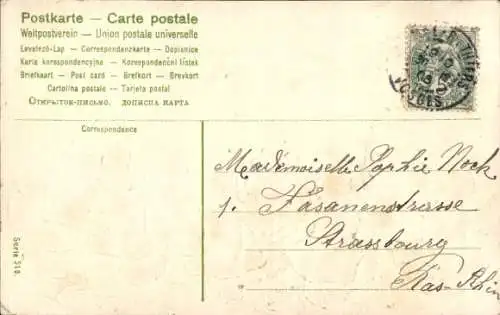 Postkarte — Carte postale
Weltpostverein — Union postale universelle
Levelező-Lap — Correspondenzkarte — Dopisnice
Karta korespondencyjna — Korespondenční lístek
Briefkaart — Post card — Brefkort — Brevkort
Cartolina postale — Tarjeta postal
Открытое-письмо, дописна карта
Correspondance
VOSGES
Mademoiselle Sophie Nock
1. Fasanenstrasse
Strassbourg
Bas-Rhin
Serie 510.